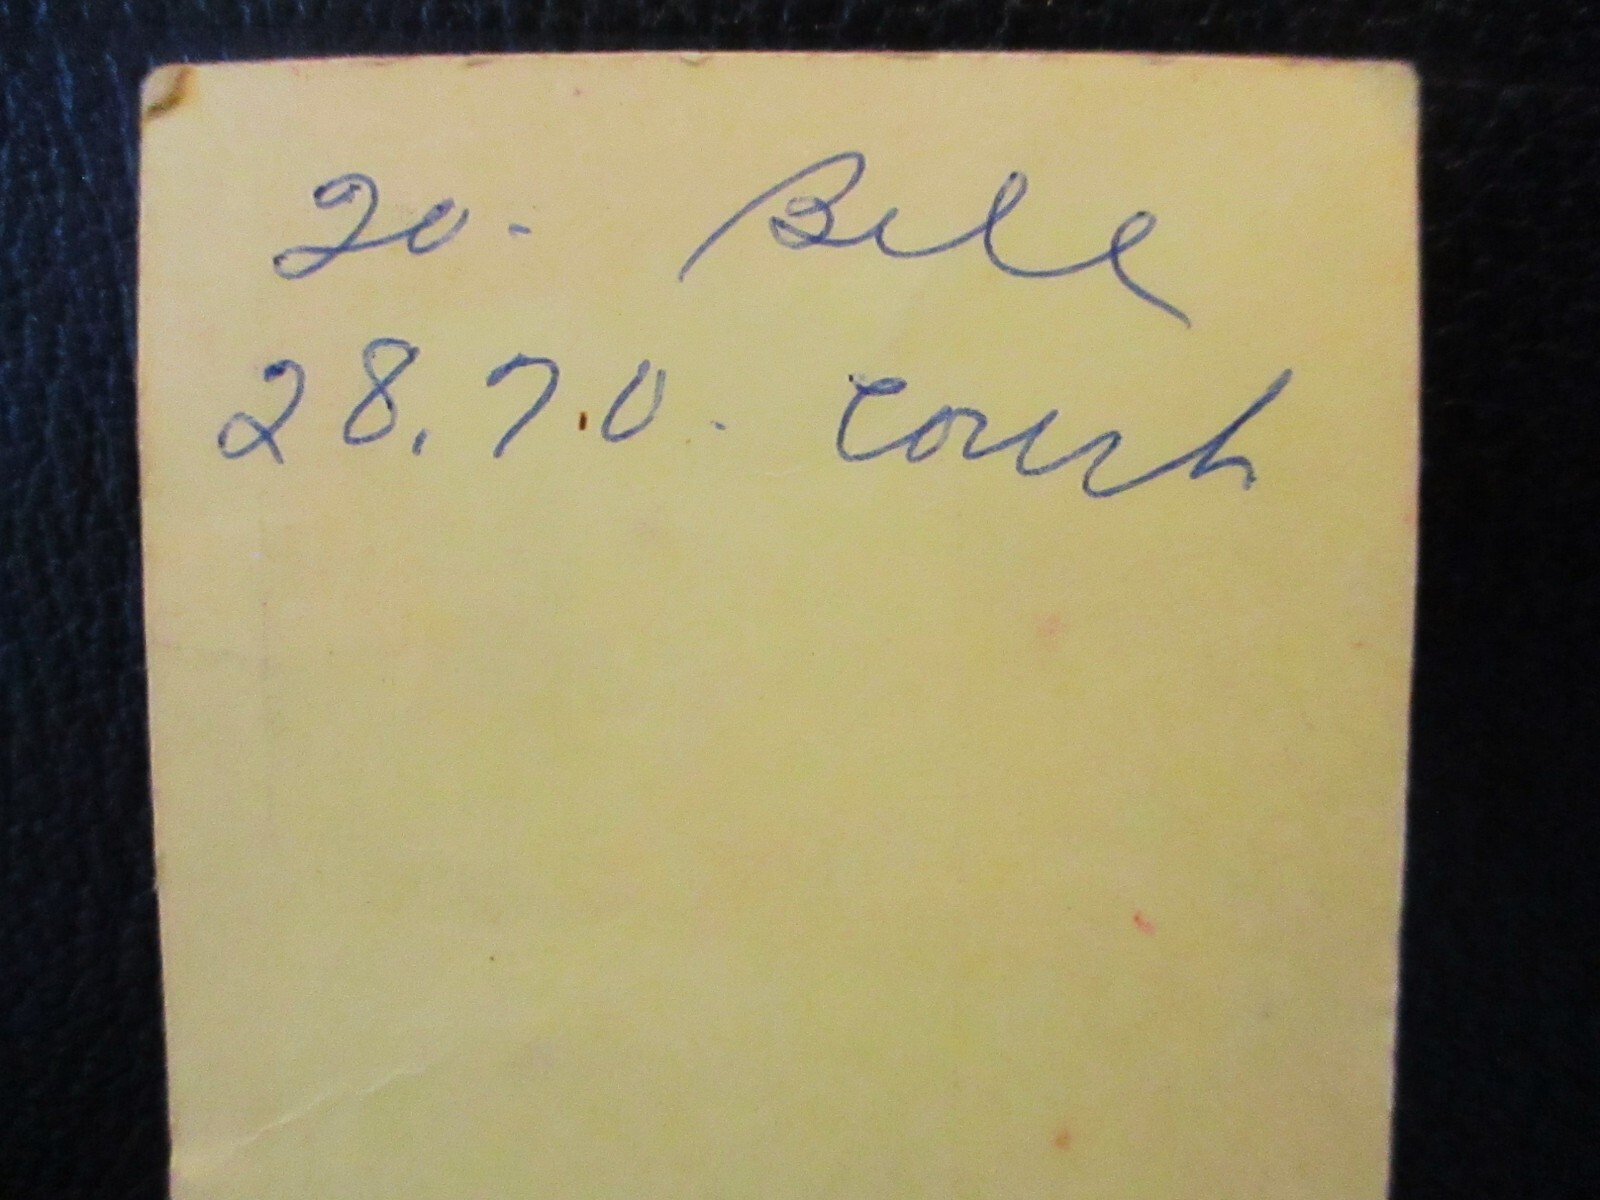 20. Bill
28.7.0. Couch